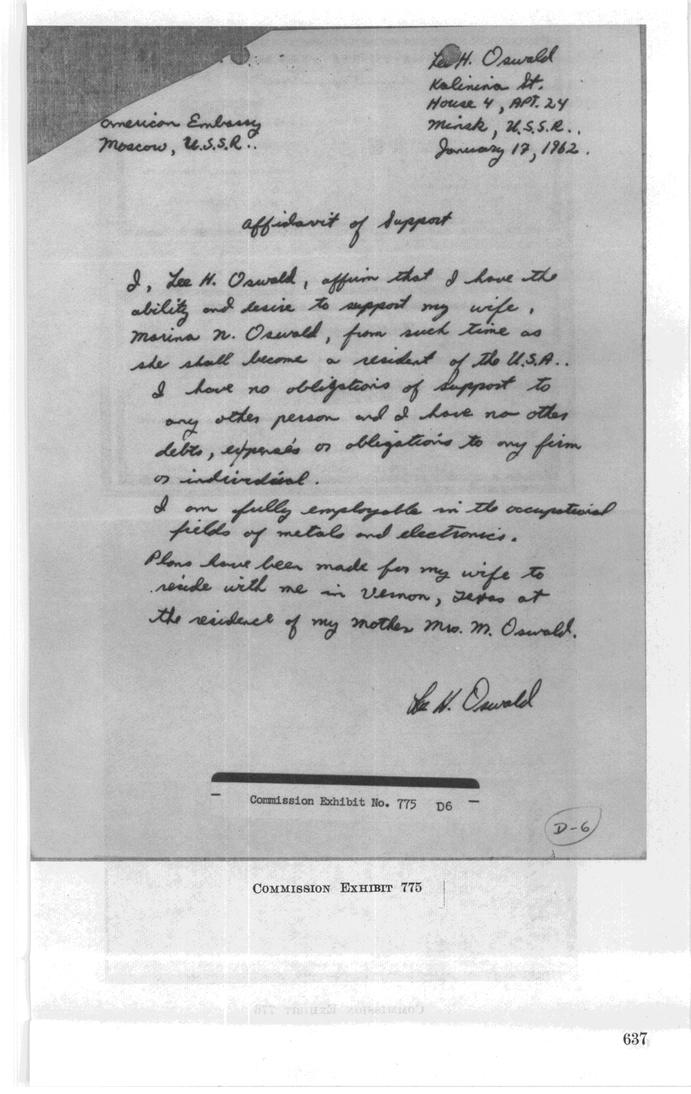 Lee H. Oswald
Kalinina St.
House 4, APT. 24
Minsk, U.S.S.R..
January 17, 1962.
American Embassy
Moscow, U.S.S.R..
Affidavit of Support
I, Lee H. Oswald, affirm that I have the
ability and desire to support my wife,
Marina N. Oswald, from such time as
she shall become a resident of the U.S.A..
I have no obligations of support to
any other person and I have no other
debts, expenses or obligations to any firm
or individual.
I am fully employable in the occupational
fields of metals and electronics.
Plans have been made for my wife to
reside with me in Vernon, Texas at
the residence of my mother Mrs. M. Oswald.
Lee H. Oswald
Commission Exhibit No. 775 D6
D-6
COMMISSION EXHIBIT 775
637